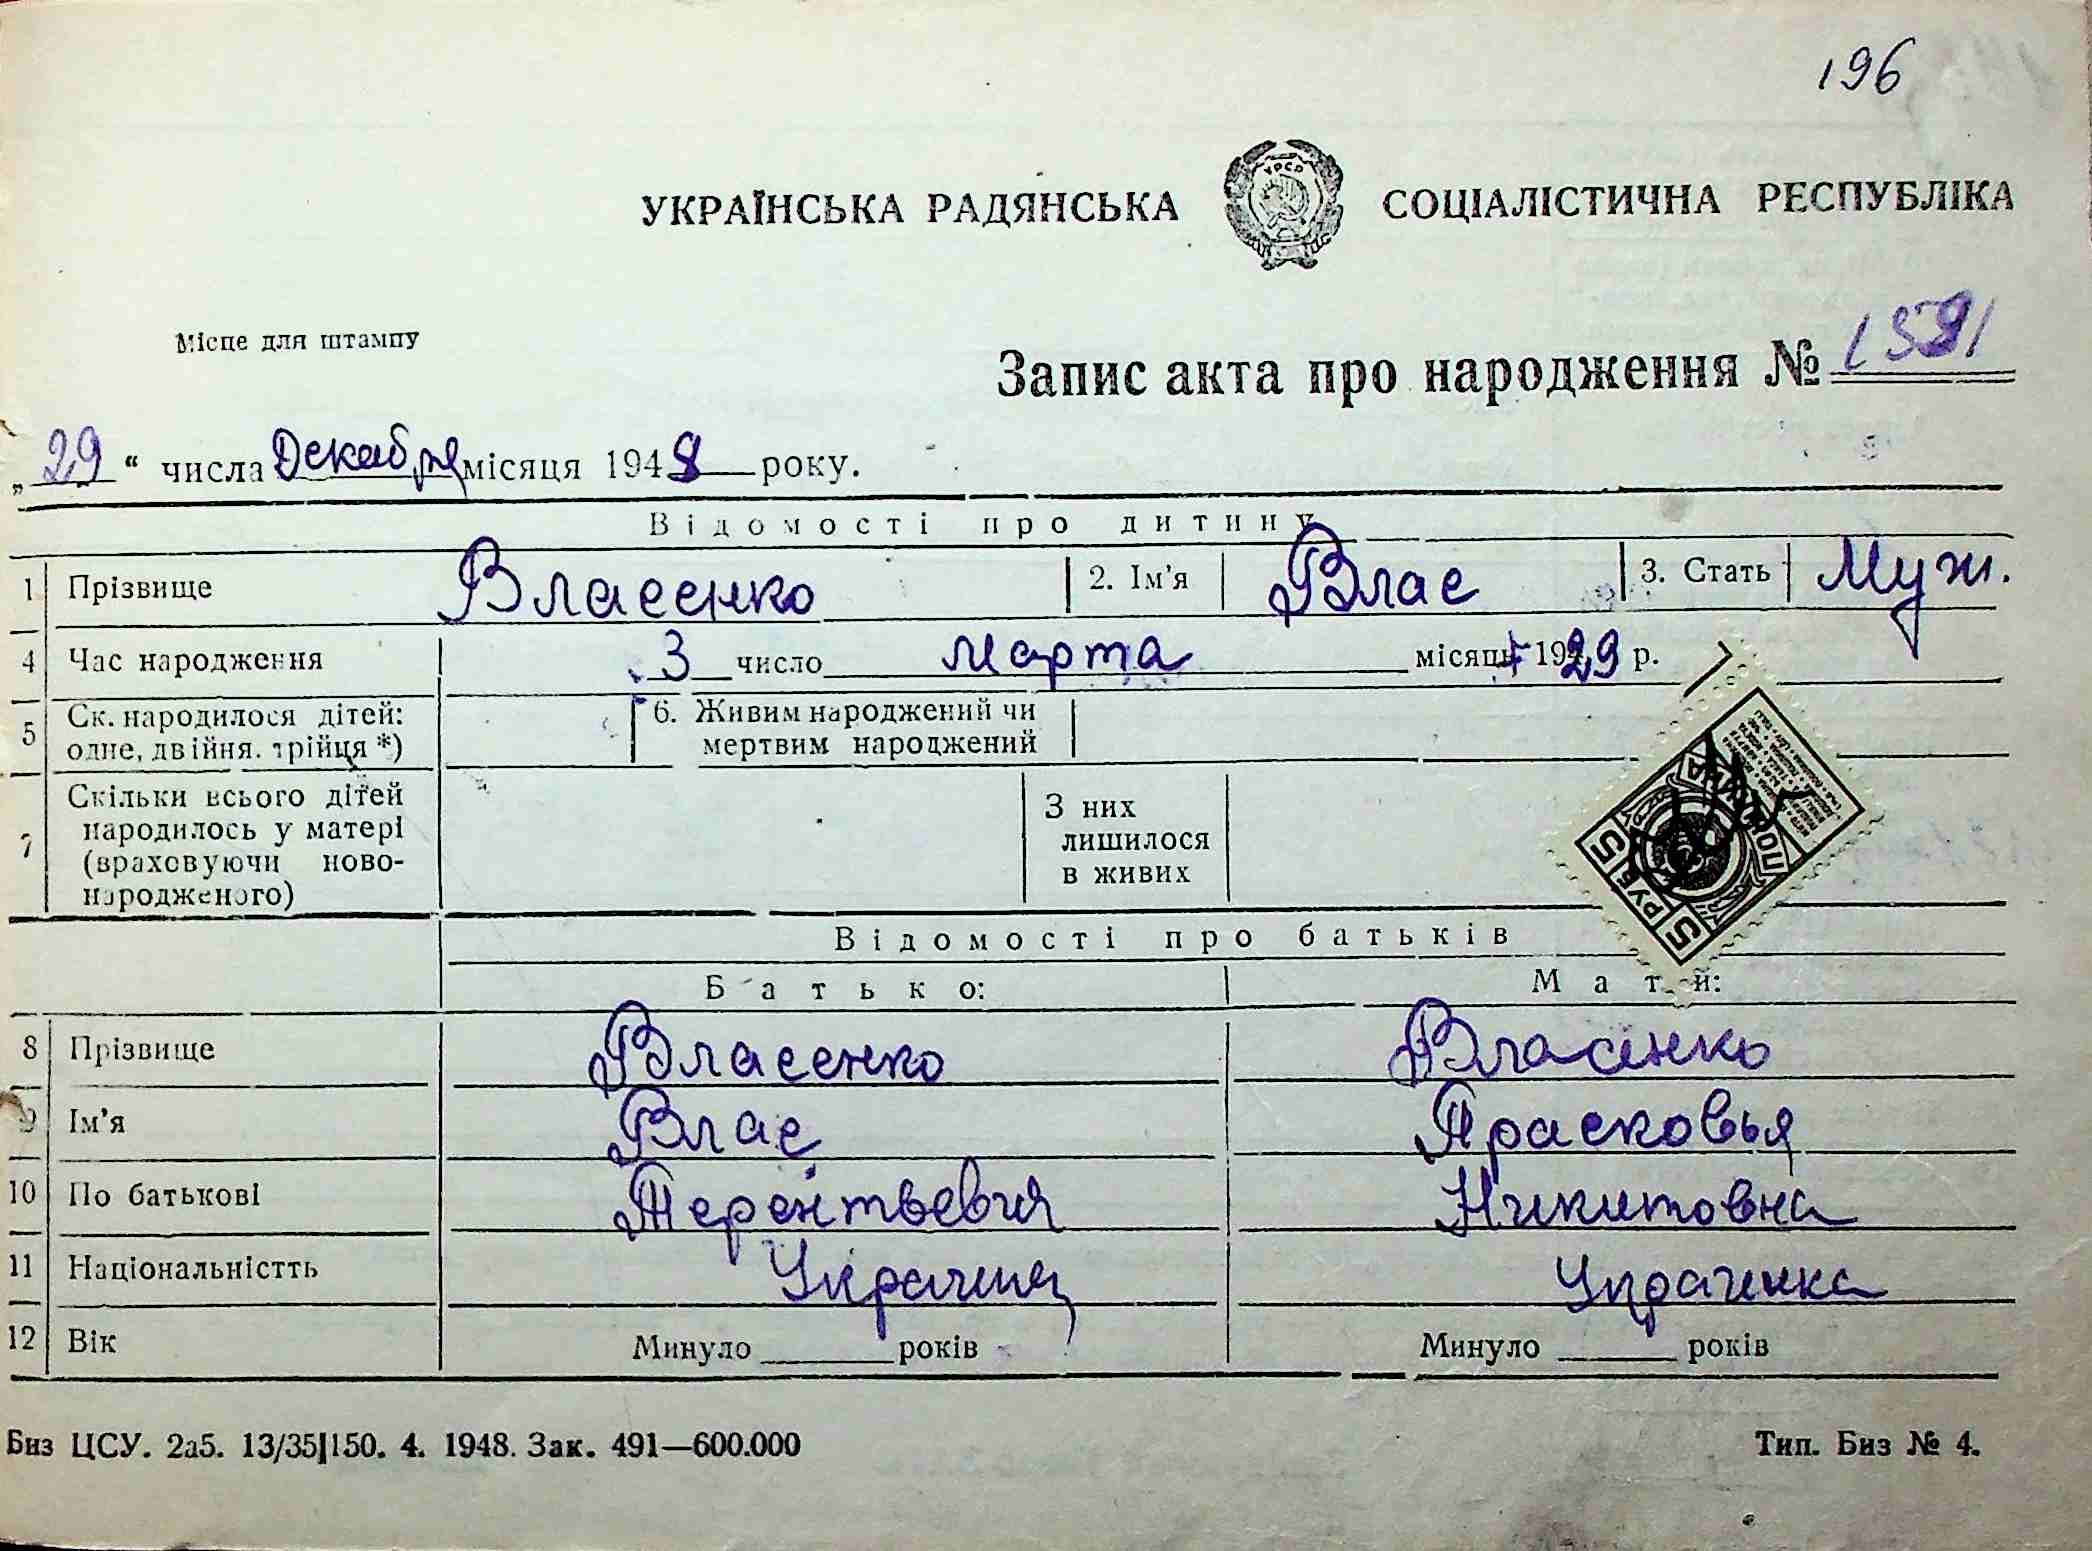 196
УКРАЇНСЬКА РАДЯНСЬКА СОЦІАЛІСТИЧНА РЕСПУБЛІКА
Місце для штампу
Запис акта про народження № 1591
„29“ числа Декабря місяця 1948 року.
Відомості про дитину
1 Прізвище Власенко 2. Ім'я Влас 3. Стать Муж.
4 Час народження 3 число марта місяця 1929 р.
5 Ск. народилося дітей: одне, двійня, трійця *) 6. Живим народжений чи мертвим народжений
7 Скільки всього дітей народилось у матері (враховуючи ново-народженого) З них лишилося в живих
5 РУБ 5
Відомості про батьків
Батько: Мати:
8 Прізвище Власенко Власенко
9 Ім'я Влас Прасковья
10 По батькові Терентьевич Никитовна
11 Національністть Украинец Украинка
12 Вік Минуло ____ років Минуло ____ років
Биз ЦСУ. 2а5. 13/35|150. 4. 1948. Зак. 491—600.000 Тип. Биз № 4.